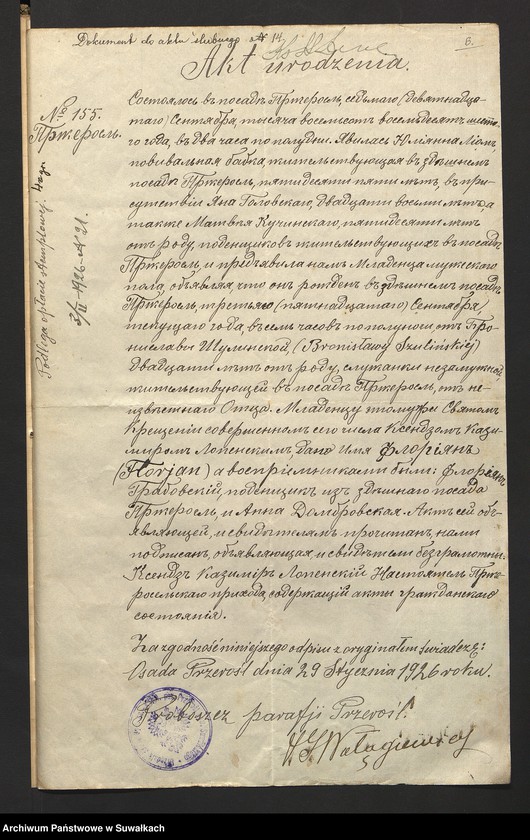 Dokument do aktu ślubnego № 14
6.
Akt urodzenia.
№ 155.
Пржеросль.
Podlega opłacie stemplowej.
3/II-1926-№21.
Состоялось въ посадѣ Пржеросль, седьмаго (девятнадца-
таго) Сентября, тысяча восемьсот восемьдесят шеста-
го года, въ два часа по полудни. Явилась Юліанна
повивальная бабка, жительствующая въ здѣшнемъ
посадѣ Пржеросль, пятидесяти пяти лѣтъ, въ при-
сутствіи Яна Головскаго, двадцати восьми лѣтъ, а
также Матвѣя Кучинскаго, пятидесяти лѣтъ
отъ роду, поденщиковъ жительствующихъ въ посадѣ
Пржеросль, и предъявила намъ Младенца мужескаго
пола, объявляя, что онъ рожденъ въ здѣшнемъ посадѣ
Пржеросль, третьяго (пятнадцатаго) Сентября
текущаго года, въ семь часовъ по полуночи, отъ Бро-
ниславы Шулинской, (Bronisławy Szulińskiej)
двадцати лѣтъ отъ роду, служанки незамужной,
жительствующей въ посадѣ Пржеросль, отъ не-
извѣстнаго Отца. Младенцу тому при Святомъ
Крещеніи совершенномъ сего числа Ксендзомъ Кази-
миромъ Лопенскимъ, дано имя Флоріянъ
(Florjan) а воспріемниками были: Флоріянъ
Грабовскій, поденщикъ изъ здѣшняго посада
Пржеросль, и Анна Домбровская. Актъ сей объ-
являющей, и свидѣтелямъ прочитанъ, нами
подписанъ, объявляющая, и свидѣтели безграмотны.
Ксендзъ Казиміръ Лопенскій Настоятель Прже-
росльскаго прихода, содержащій акты гражданскаго
состоянія.
Za zgodność niniejszego odpisu z oryginałem świadczę:
Osada Przerośl dnia 29 Stycznia 1926 roku.
Proboszcz parafji Przerośl.
Archiwum Państwowe w Suwałkach